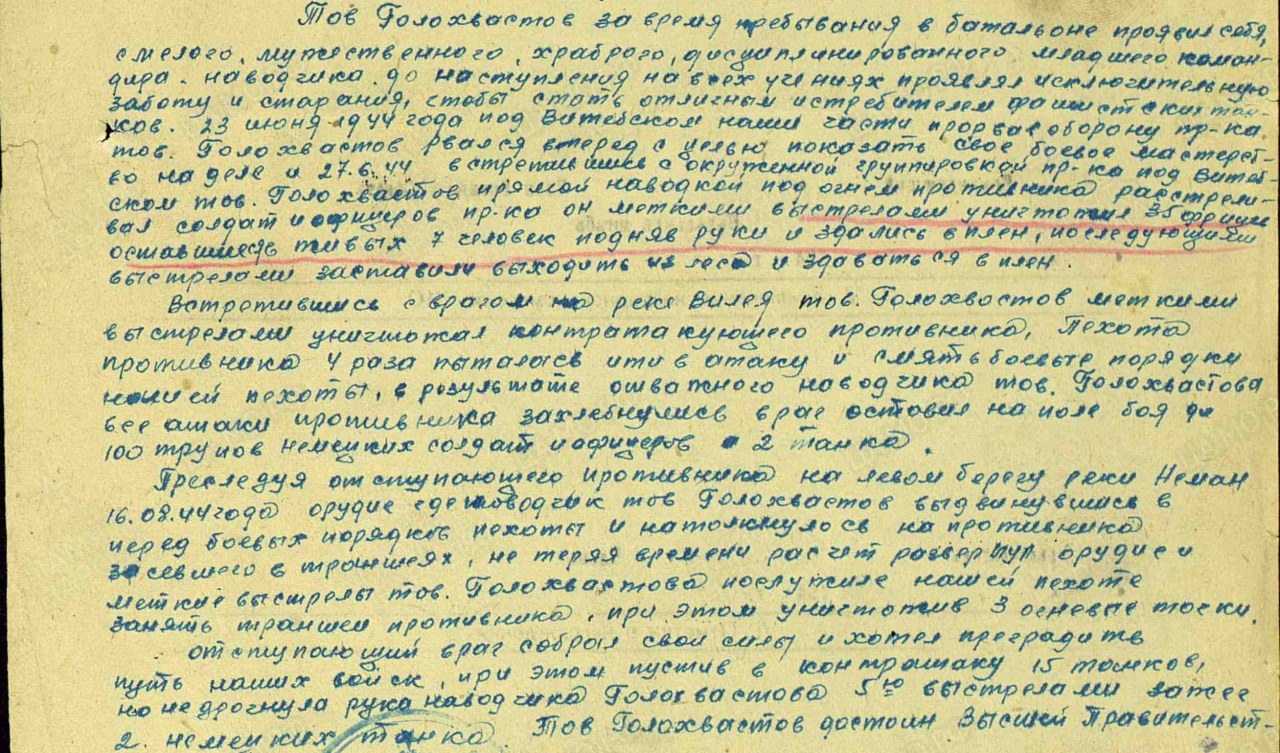 Тов Голохвастов за время пребывания в батальоне проявил себя,
смелого, мужественного, храброго, дисциплинированного младшего коман-
дира. наводчика. до наступления на всех учениях проявлял исключительную
заботу и старания, стобы стать отличным истребителем фашистских тан-
ков. 23 июня 1944 года под Витебском наши части прорвав оборону пр-ка
тов. Голохвастов рвался вперед с целью показать свое боевое мастерст-
во на деле и 27.6.44 встретившись с окруженной группировкой пр-ка под Витеб-
ском тов. Голохвастов прямой наводкой под огнем противника расстрели-
вал солдат и офицеров пр-ка он меткими выстрелами уничтожил 35 фрицев
оставшиеся живых 7 человек подняв руки и здались в плен, последующими
выстрелами заставили выходить из леса и здаваться в плен.
Встретившись с врагом на реке Вилея тов. Голохвостов меткими
выстрелами уничтожал контратакующего противника, Пехота
противника 4 раза пыталась ити в атаку и смять боевые порядки
нашей пехоты, в розультате отважного наводчика тов. Голохвастова
все атаки противника захлебнулись враг оставил на поле боя до
100 трупов немецких солдат и офицеров и 2 танка.
Преследуя отступающего противника на левом берегу реки Неман
16.08.44 года орудие где наводчик тов Голохвастов выдвинувшись в
перед боевых порядков пехоты и натолкнулось на противника
засевшего в траншеях, не теряя времени расчет развернул орудие и
меткие выстрелы тов. Голохвастова послужиле нашей пехоте
занять траншеи противника, при этом уничтожив 3 огневые точки.
Отступающий враг собрал свои силы и хотел преградить
путь наших войск, при этом пустив в контратаку 15 танков,
но не дрогнула рука наводчика Голохвастова 5ю выстрелами зажег
2. немецких танка. Тов Голохвастов достоин Высшей Правительст-